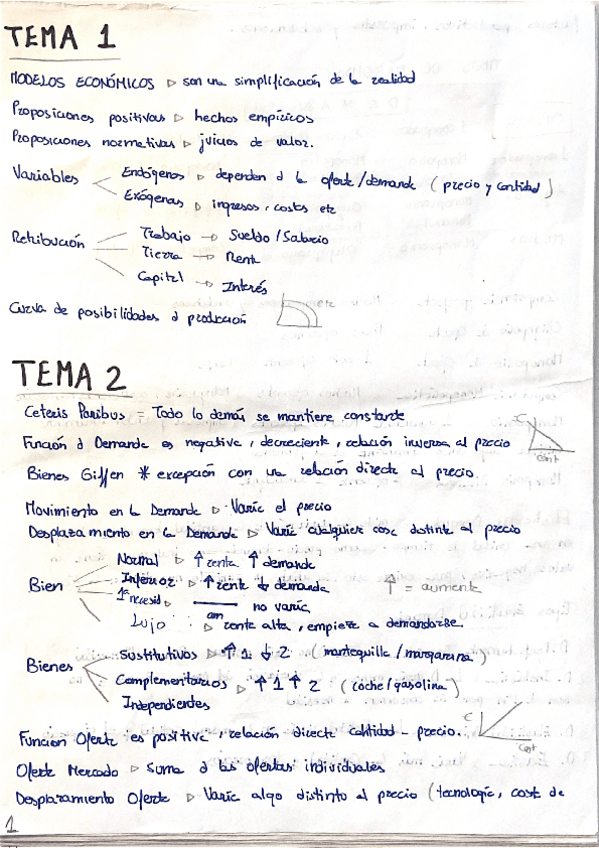 TEMA 1
MODELOS ECONÓMICOS ▷ son una simplificación de la realidad
Proposiciones positivas ▷ hechos empíricos
Proposiciones normativas ▷ juicios de valor.
Variables
Endógenos ▷ dependen d la oferta/demanda (precio y cantidad)
Exógenas ▷ ingresos, costes etc
Retribución
Trabajo → Sueldo / Salario
Tierra → Rent
Capital → Interés
Curva de posibilidades d producción
TEMA 2
Ceteris Paribus = Todo lo demás se mantiene constante
Función d Demanda es negativa, decreciente, relación inversa al precio
Bienes Giffen * excepción con una relación directa al precio.
Movimiento en la Demanda ▷ Varía el precio
Desplazamiento en la Demanda ▷ Varía cualquier cosa distinta al precio
Bien
Normal ▷ ↑ renta ↑ demanda
Inferior ▷ ↑ renta ↓ demanda
1ª necesid ▷ no varía
Lujo ▷ con renta alta, empieza a demandarse.
↑ = aumenta
Bienes
Sustitutivos ▷ ↑ 1 ↓ 2 (mantequilla / margarina)
Complementarios ▷ ↑ 1 ↑ 2 (coche / gasolina)
Independientes
Funcion Oferta es positiva, relación directa cantidad - precio.
Oferta Mercado ▷ Suma d las ofertas individuales
Desplazamiento Oferta ▷ Varía algo distinto al precio (tecnología, cost de
1